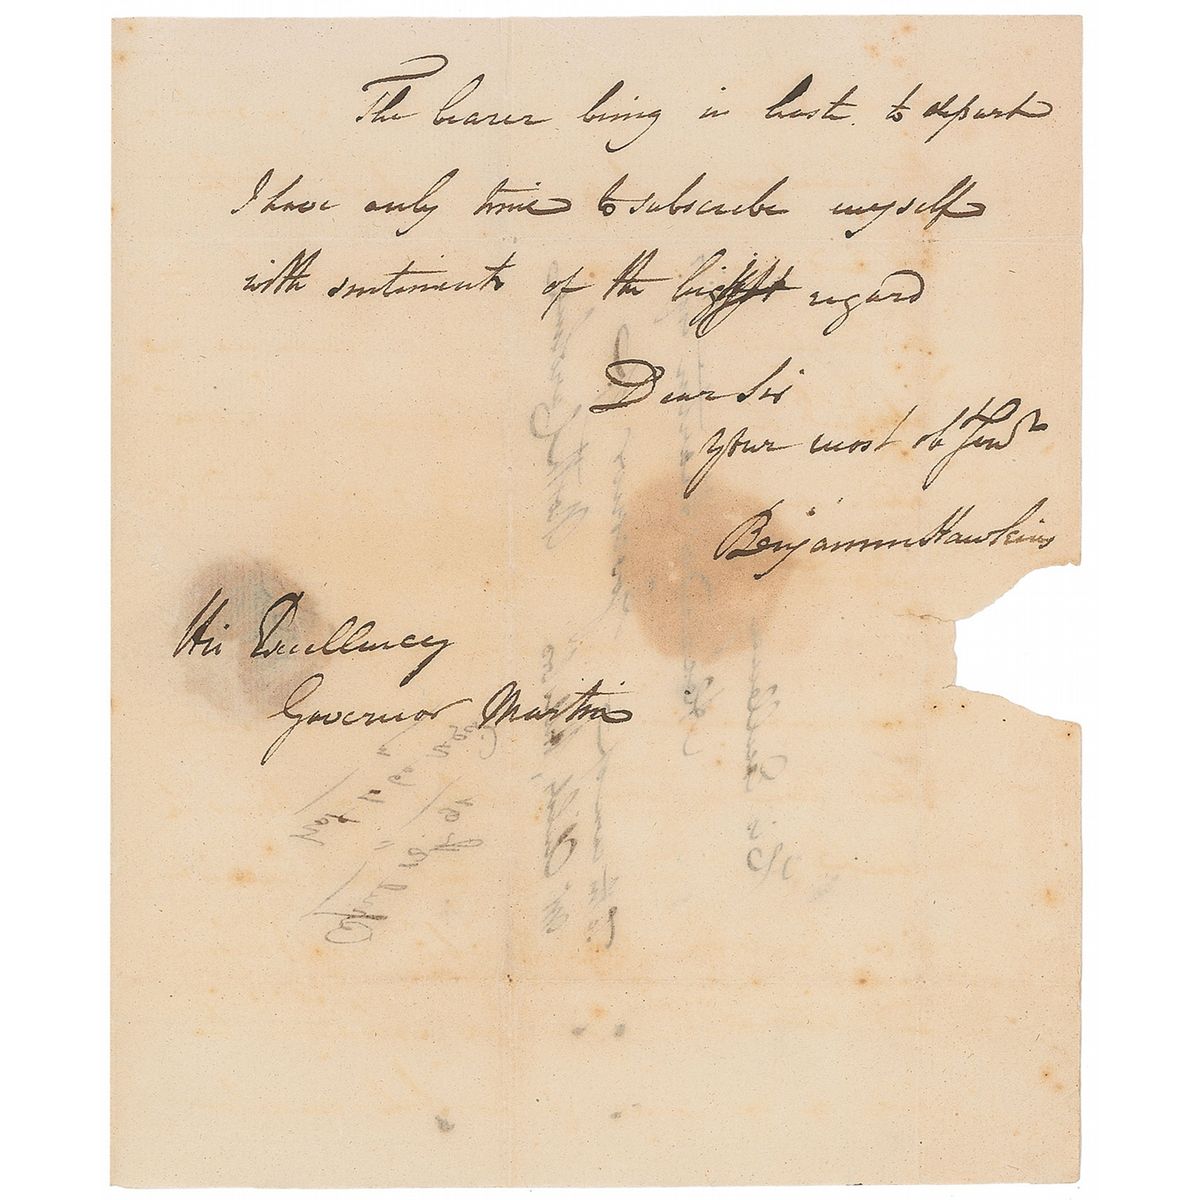 The bearer being in haste to depart
I have only time to subscribe myself
with sentiments of the highest regard
Dear Sir
your most ob Servt
Benjamin Hawkins
His Excellency
Governor Martin